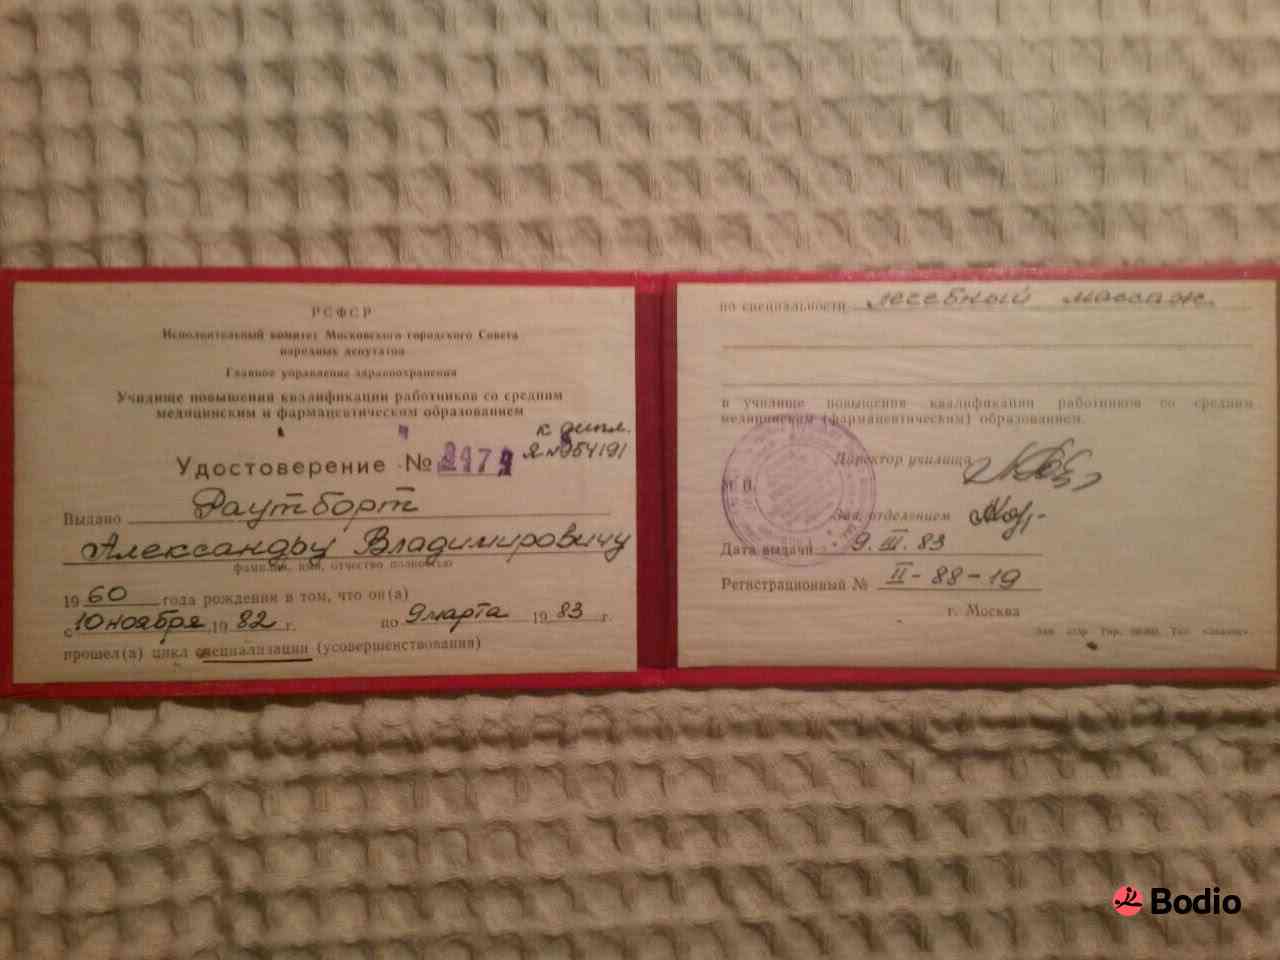 РСФСР
Исполнительный комитет Московского городского Совета
народных депутатов
Главное управление здравоохранения
Училище повышения квалификации работников со средним
медицинским и фармацевтическим образованием
к дипл.
Я №954191
Удостоверение №
Выдано Раутборт
Александру Владимировичу
фамилия, имя, отчество полностью
1960 года рождения в том, что он(а)
с 10 ноября 1982 г. по 9 марта 1983 г.
прошел(а) цикл специализации (усовершенствования)
по специальности лечебный массаж.
в училище повышения квалификации работников со средним
медицинским (фармацевтическим) образованием.
Директор училища
М. П.
Зав. отделением
Дата выдачи 9.III.83
Регистрационный № II-88-19
г. Москва
Bodio